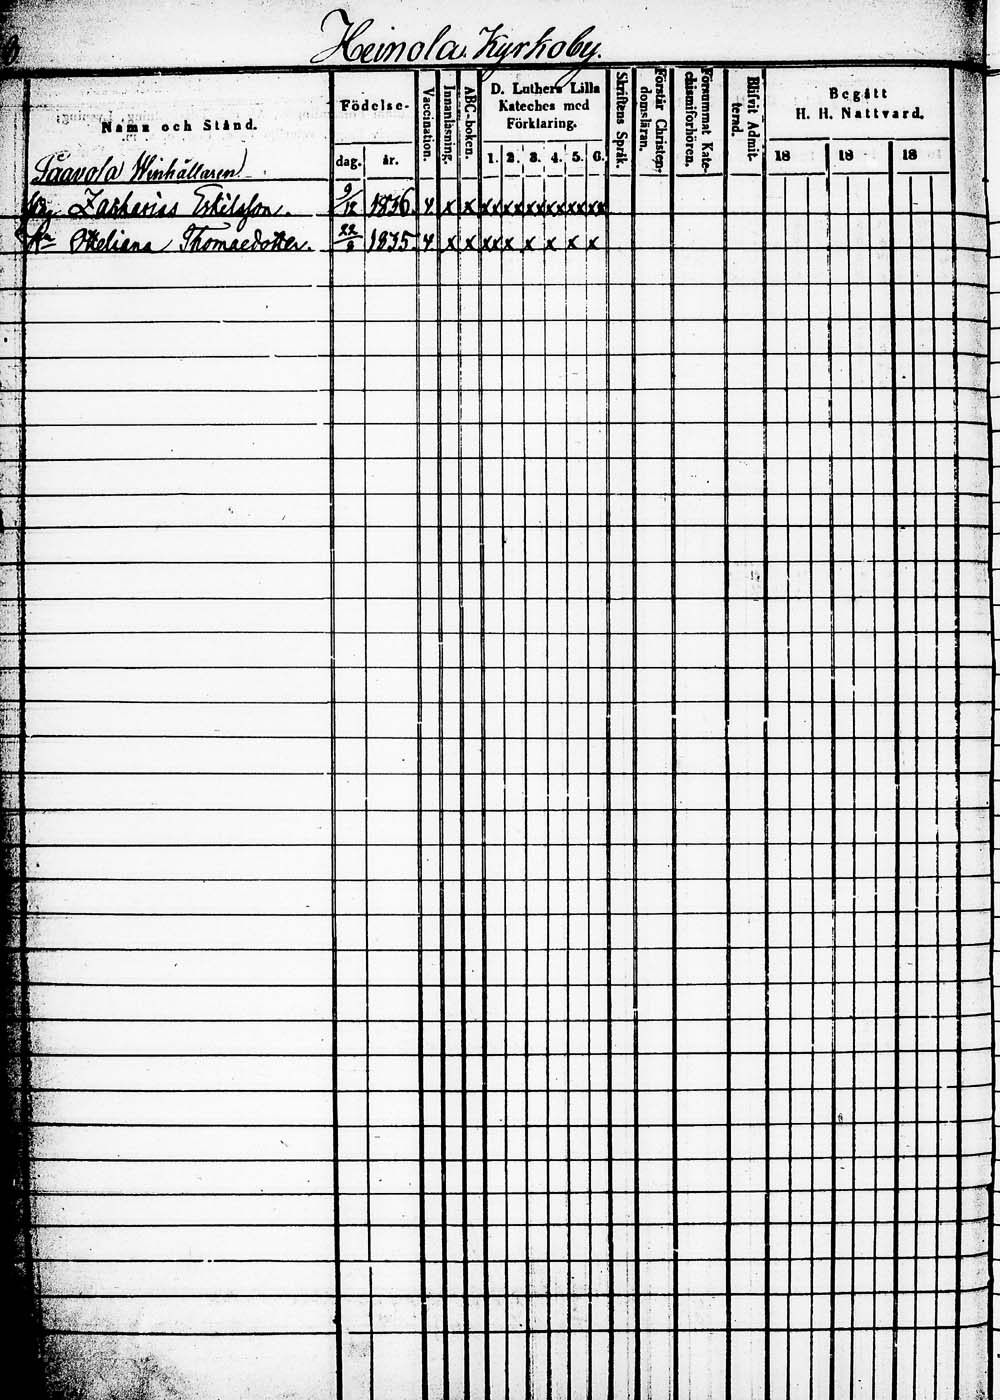 Heinola Kyrkoby.
Namn och Stånd.
Födelse-
dag. år.
Vaccination.
Innanläsning.
ABC-boken.
D. Luthers Lilla
Kateches med
Förklaring.
1. 2. 3. 4. 5. 6.
Skriftens Språk.
Förstår Christen-
domsläran.
Försummat Kate-
chismiförhören.
Blifvit Admit-
terad.
Begått
H. H. Nattvard.
18 18 18
Paavola
Zacharias Eskilsson. 9/12 1836. v x x xxxxxxxxxxxx
Heliana Thomaedotter. 1835. v x x xx x x x x x